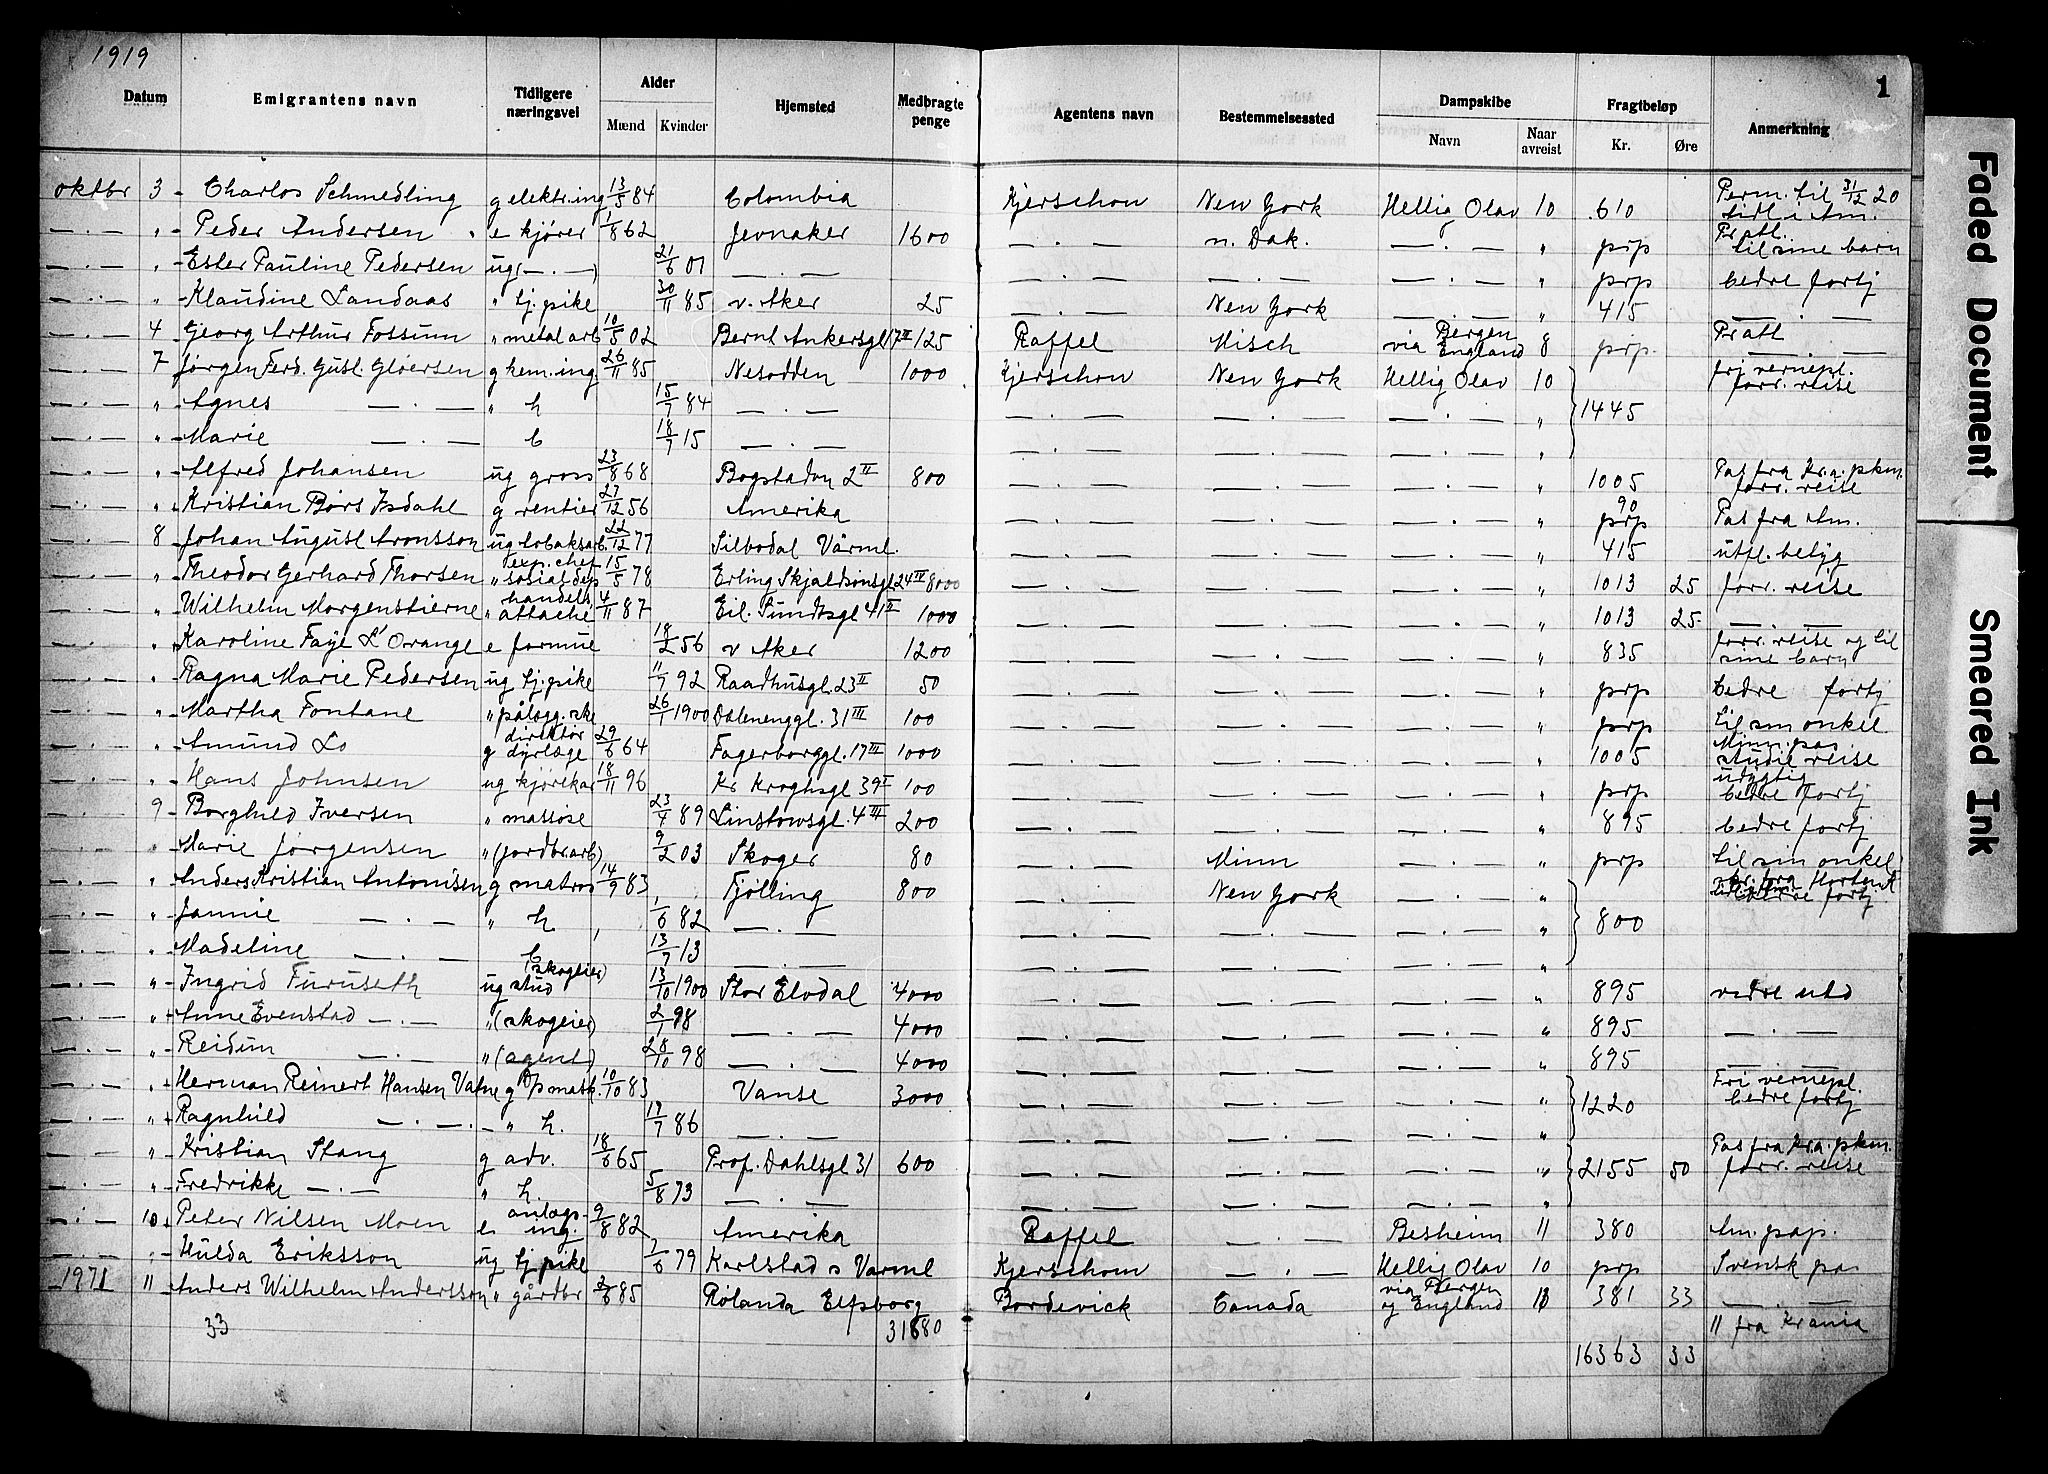 1919
1
Datum | Emigrantens navn | Tidligere næringsvei | Alder Mænd Kvinder | Hjemsted | Medbragte penge | Agentens navn | Bestemmelsessted | Dampskibe Navn Naar avreist | Fragtbeløp Kr. Øre | Anmerkning
oktbr 3 - Charlos Schmedling g elektr.ing 13/5 84 Colombia Kjerschow New York Hellig Olav 10 610 Perm. til 31/12 20 tidl. i Am.
— . — " - Peder Andersen e kjører 1/8 62 Jevnaker 1600 — . — n. Dak. — . — " prp Pratl. til sine barn
— . — " - Ester Pauline Pedersen ug (— . —) 21/6 01 — . — — . — — . — — . — " prp bedre fortj
— . — " - Klaudine Landaas " tj. pike 30/11 85 v. Aker 25 — . — New York — . — " 415 — . —
— . — 4 - Georg Arthur Fossum " metalarb 10/5 02 Bernt Ankersgt 17 II 125 Raffel Misch via Bergen England 8 prp. Pratl — . —
— . — 7 - Jørgen Ferd. Gust. Gløersen g kem. ing 26/11 85 Nesodden 1000 Kjerschow New York Hellig Olav 10 1445 fri vernepl. forr. reise
— . — " - Agnes — . — " h 15/7 84 — . — — . — — . — — . — "
— . — " - Marie — . — b 18/7 15 — . — — . — — . — — . — "
— . — " - Alfred Johansen ug gross 23/8 68 Bogstadvn 2 II 800 — . — — . — — . — " 1005 Pas fra Kr.a. pkm. forr. reise
— . — " - Kristian Børs Isdahl g rentier 27/12 56 Amerika — . — — . — — . — " 90 prp Pas fra Am.
— . — 8 - Johan August Aronsson ug tobaksarb. 22/12 77 Silbodal Värml. — . — — . — — . — " 415 utfl. betyg
— . — " - Theodor Gerhard Thorsen " exp. chef sosialdep 15/5 78 Erling Skjalgsonsgt 24 IV 8000 — . — — . — — . — " 1013 25 forr. reise
— . — " - Wilhelm Morgenstierne " handels attaché 4/11 87 Eil. Sundtsgt 41 II 1000 — . — — . — — . — " 1013 25 — . —
— . — " Karoline Faye L'Orange e formue 18/2 56 v Aker 1200 — . — — . — — . — " 835 forr. reise og til sine barn
— . — " - Ragna Marie Pedersen ug tj. pike 11/7 92 Raadhusgt. 23 II 50 — . — — . — — . — " prp bedre fortj
— . — " - Martha Fontane " pålægg. ske 26/1 1900 Dælenenggt. 31 III 100 — . — — . — — . — " prp til sin onkel
— . — " - Amund Lo g direktør dyrlæge 29/6 64 Fagerborggt. 17 III 1000 — . — — . — — . — " 1005 Min. pas studie reise
— . — " - Hans Johnsen ug kjørekar 18/11 96 Kr Kroghsgt 39 I 100 — . — — . — — . — " prp udygtig bedre fortj
— . — 9 - Borghild Iversen " massøse 23/4 89 Linstowsgt. 4 III 200 — . — — . — — . — " 895 bedre fortj
— . — " - Marie Jørgensen " (jordbr.arb) 9/2 03 Skoger 80 — . — Minn — . — " prp til sin onkel
— . — " - Anders Kristian Antonisen g matros 14/9 83 Tjølling 800 — . — New York — . — " 800 fra Horten bedre fortj
— . — " - Jannie — . — " h 1/6 82 — . — — . — — . — — . — "
— . — " - Madeline — . — b 13/7 13 — . — — . — — . — — . — "
— . — " - Ingrid Furuseth ug (skogeier) stud 13/10 1900 Stor Elvdal 4000 — . — — . — — . — " 895 vidre utd
— . — " - Anne Evenstad — . — " (skogeier) 2/1 98 — . — 4000 — . — — . — — . — " 895 — . —
— . — " - Reidun — . — " (agent) 28/10 98 — . — 4000 — . — — . — — . — " 895 — . —
— . — " - Herman Reinert Hansen Vatne g op mask. 10/10 83 Vanse 3000 — . — — . — — . — " 1220 Fri vernepl. bedre fortj
— . — " - Ragnhild — . — " h. 17/7 86 — . — — . — — . — — . — "
— . — " - Kristian Stang g adv. 18/6 65 Prof. Dahlsgt 31 600 — . — — . — — . — " 2155 50 Pas fra Kr.a. pkm. forr. reise
— . — " - Fredrikke — . — " h. 5/8 73 — . — — . — — . — — . — "
— . — 10 - Peter Nilsen Moen e anlægs- ing. 9/8 82 Amerika Raffel — . — Besheim 11 380 Am. pap.
— . — " - Hulda Eriksson ug tj pike 7/6 79 Karlstad s Värml Kjerschow — . — Hellig Olav 10 prp Svensk pas
1971 11 - Anders Wilhelm Andersson " gårdbr 2/6 85 Rølanda Elfsborg Bordevick Canada via Bergen og England 381 33 — . —
33 31680 11 fra Krania
16363 33
Faded Document
Smeared Ink